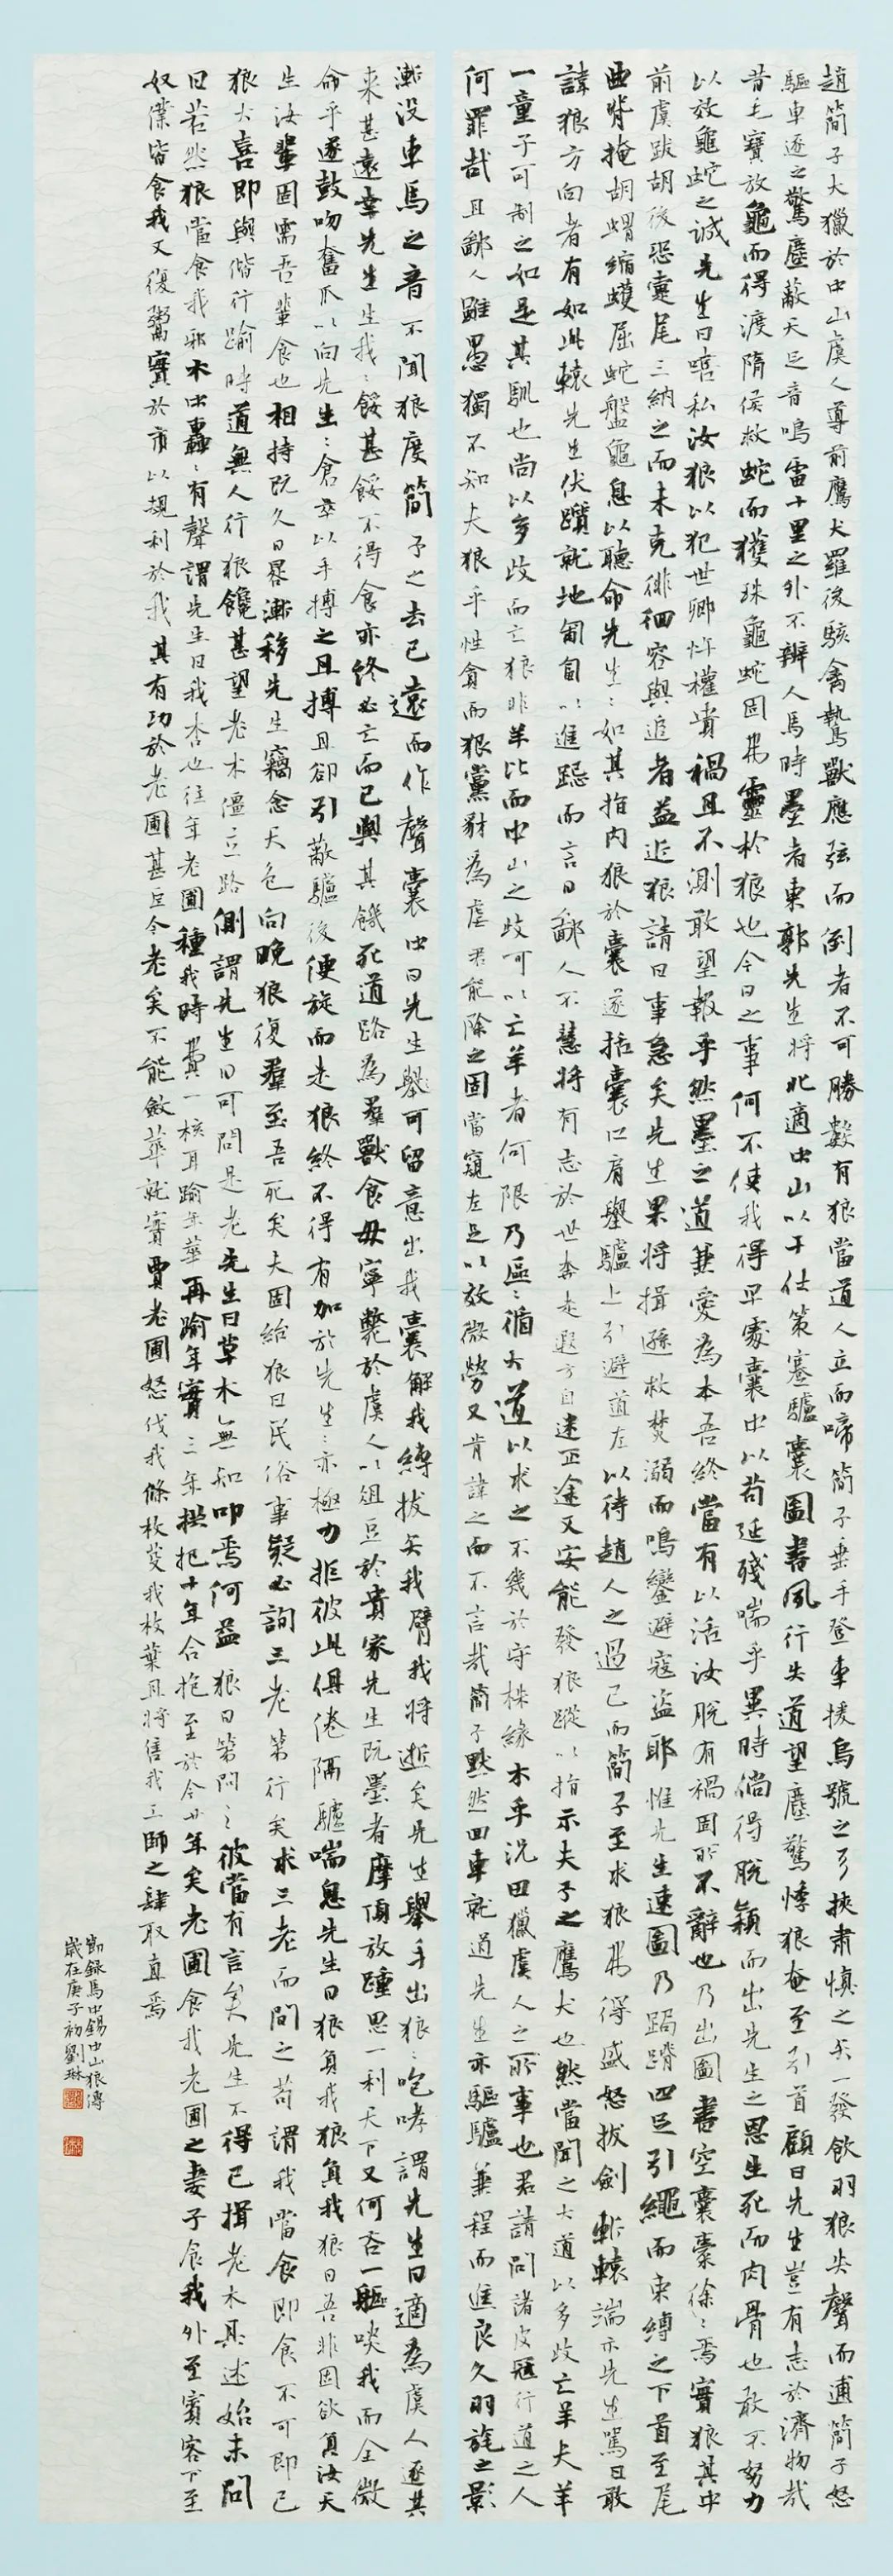 趙簡子大獵於中山虞人導前鷹犬羅後駭禽鷙獸應弦而倒者不可勝數有狼當道人立而啼簡子垂手登車援烏號之弓挾肅慎之矢一發飲羽狼失聲而逋簡子怒
驅車逐之驚塵蔽天足音鳴雷十里之外不辨人馬時墨者東郭先生將北適中山以干仕策蹇驢囊圖書夙行失道望塵驚悸狼奄至引首顧曰先生豈有志於濟物哉
昔毛寶放龜而得渡隋侯救蛇而獲珠龜蛇固弗靈於狼也今日之事何不使我得早處囊中以苟延殘喘乎異時倘得脫穎而出先生之恩生死而肉骨也敢不努力
以效龜蛇之誠先生曰嘻私汝狼以犯世卿忤權貴禍且不測敢望報乎然墨之道兼愛為本吾終當有以活汝脫有禍固所不辭也乃出圖書空囊橐徐〻焉實狼其中
前虞跋胡後恐疐尾三納之而未克徘徊容與追者益近狼請曰事急矣先生果將揖遜救焚溺而鳴鑾避寇盜耶惟先生速圖乃跼蹐四足引繩而束縛之下首至尾
曲脊掩胡蝟縮蠖屈蛇盤龜息以聽命先生〻如其指內狼於囊遂括囊口肩舉驢上引避道左以待趙人之過已而簡子至求狼弗得盛怒拔劍斬轅端示先生罵曰敢
諱狼方向者有如此轅先生伏躓就地匍匐以進跽而言曰鄙人不慧將有志於世奔走遐方自迷正途又安能發狼蹤以指示夫子之鷹犬也然嘗聞之大道以多歧亡羊夫羊
一童子可制之如是其馴也尚以多歧而亡狼非羊比而中山之歧可以亡羊者何限乃區〻循大道以求之不幾於守株緣木乎況田獵虞人之所事也君請問諸皮冠行道之人
何罪哉且鄙人雖愚獨不知夫狼乎性貪而狠黨豺為虐君能除之固當窺左足以效微勞又肯諱之而不言哉簡子默然回車就道先生亦驅驢兼程而進良久羽旄之影
漸沒車馬之音不聞狼度簡子之去已遠而作聲囊中曰先生舉可留意出我囊解我縛拔矢我臂我將逝矣先生舉手出狼〻咆哮謂先生曰適為虞人逐其
來甚遠幸先生生我〻餒甚餒不得食亦終必亡而已與其饑死道路為群獸食毋寧斃於虞人以俎豆於貴家先生既墨者摩頂放踵思一利天下又何吝一軀啖我而全微
命乎遂鼓吻奮爪以向先生〻倉卒以手搏之且搏且卻引蔽驢後便旋而走狼終不得有加於先生〻亦極力拒彼此俱倦隔驢喘息先生曰狼負我狼負我狼曰吾非固欲負汝天
生汝輩固需吾輩食也相持既久日晷漸移先生竊念天色向晚狼復群至吾死矣夫因紿狼曰民俗事疑必詢三老第行矣求三老而問之苟謂我當食即食不可即已
狼大喜即與偕行踰時道無人行狼饞甚望老木僵立路側謂先生曰可問是老先生曰草木無知叩焉何益狼曰第問〻彼當有言矣先生不得已揖老木具述始末問
曰若然狼當食我耶木中轟〻有聲謂先生曰我杏也往年老圃種我時費一核耳踰年華再踰年實三年拱把十年合抱至於今廿年矣老圃食我老圃之妻子食我外至賓客下至
奴僕皆食我又復鬻實於市以規利於我其有功於老圃甚巨今老矣不能斂華就實賈老圃怒伐我條枚芟我枝葉且將售我工師之肆取直焉
節錄馬中錫中山狼傳
歲在庚子初劉琳